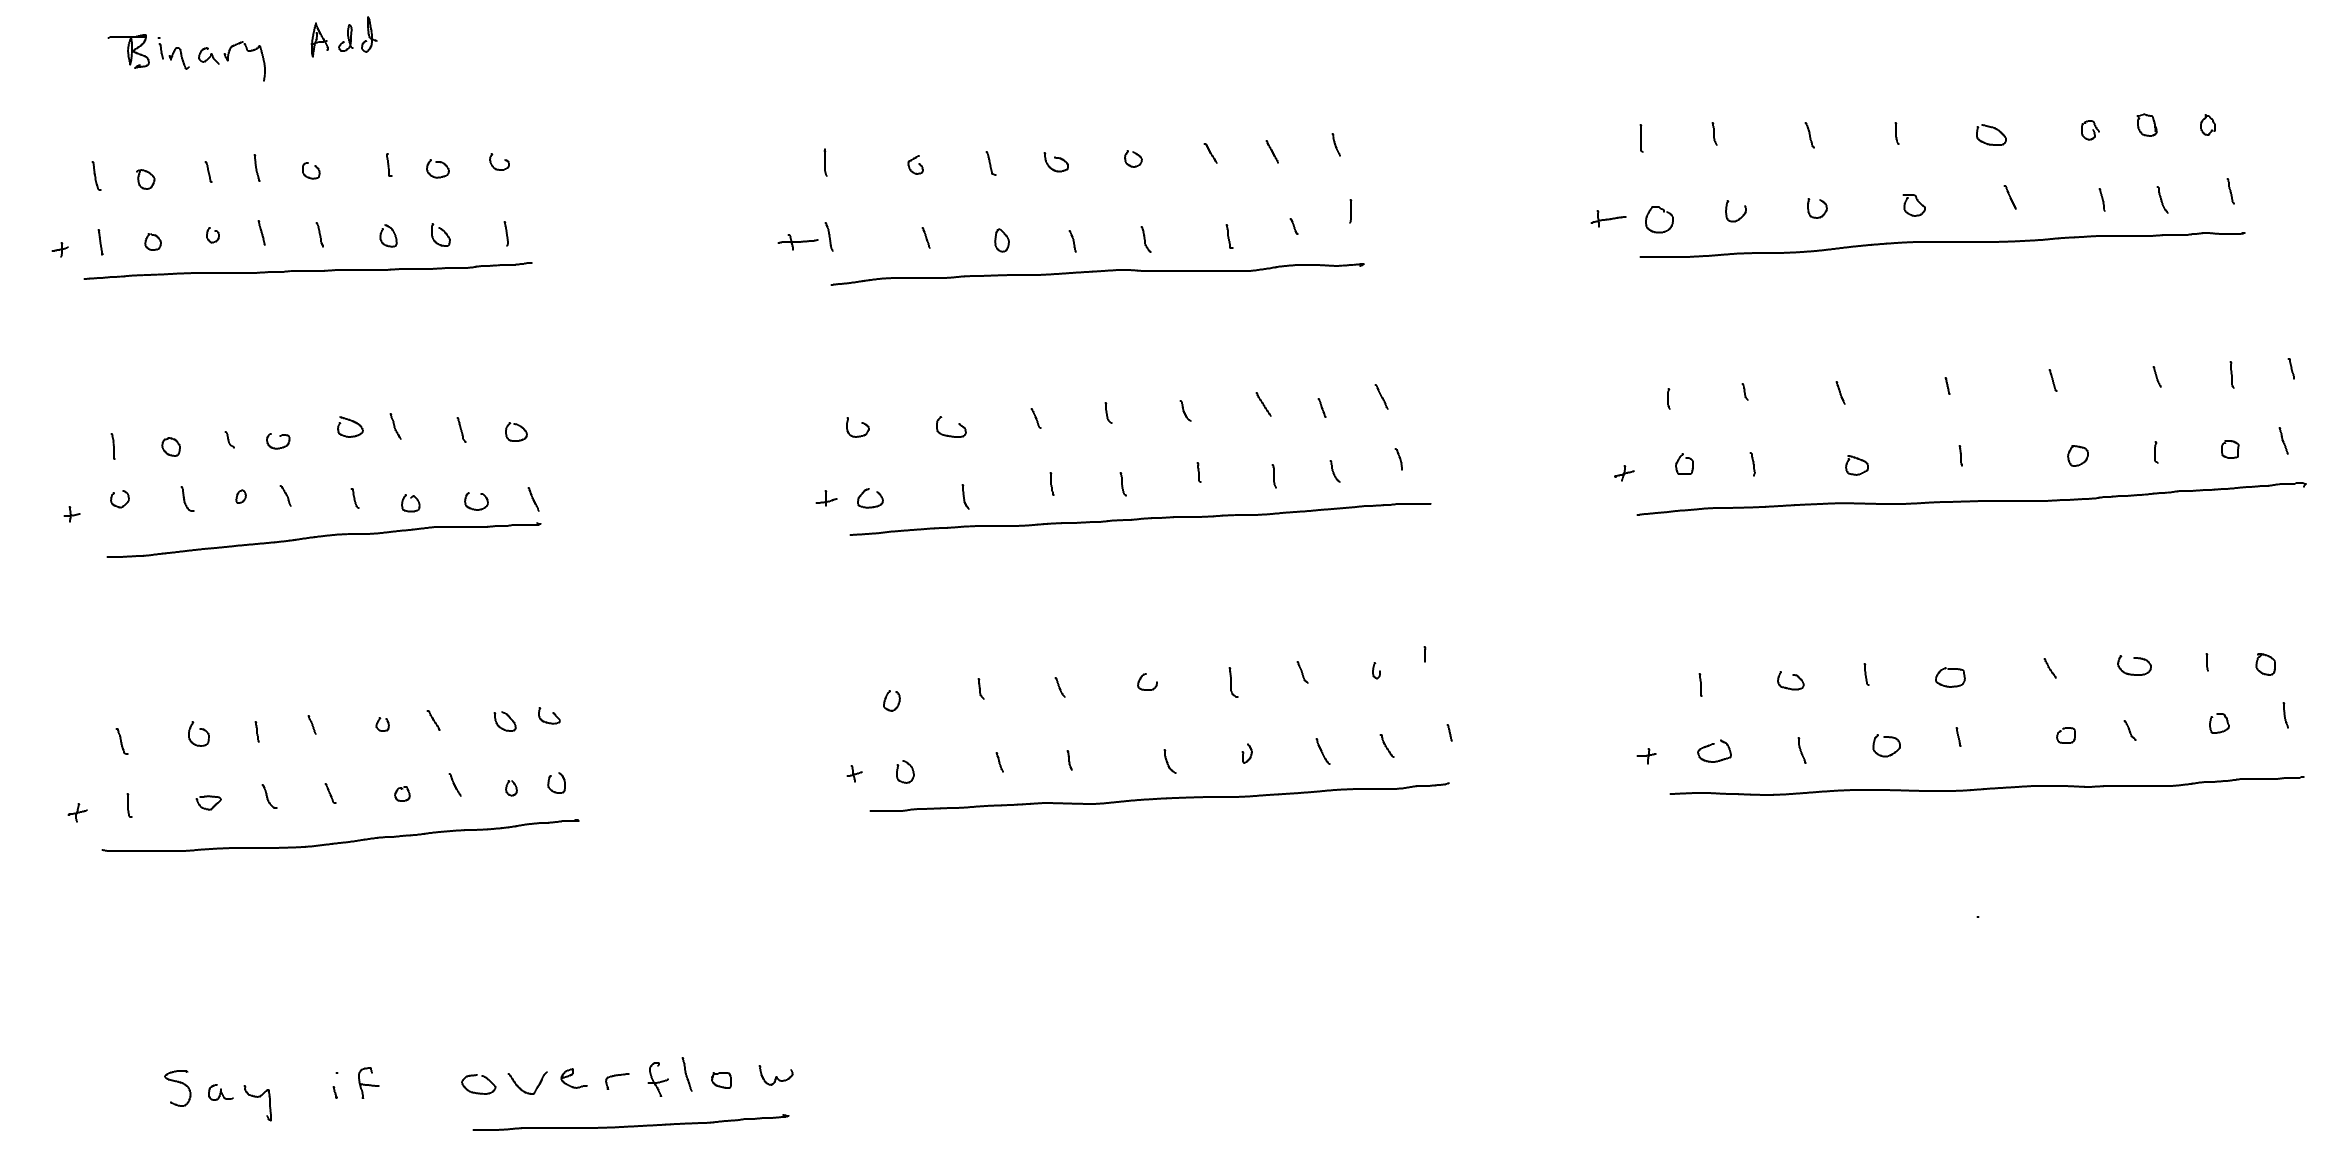 Binary Add
10110100
+10011001
10100111
+11011111
11110000
+00001111
10100110
+01011001
00111111
+01111111
11111111
+01010101
10110100
+10110100
01101101
+01110111
10101010
+01010101
Say if overflow